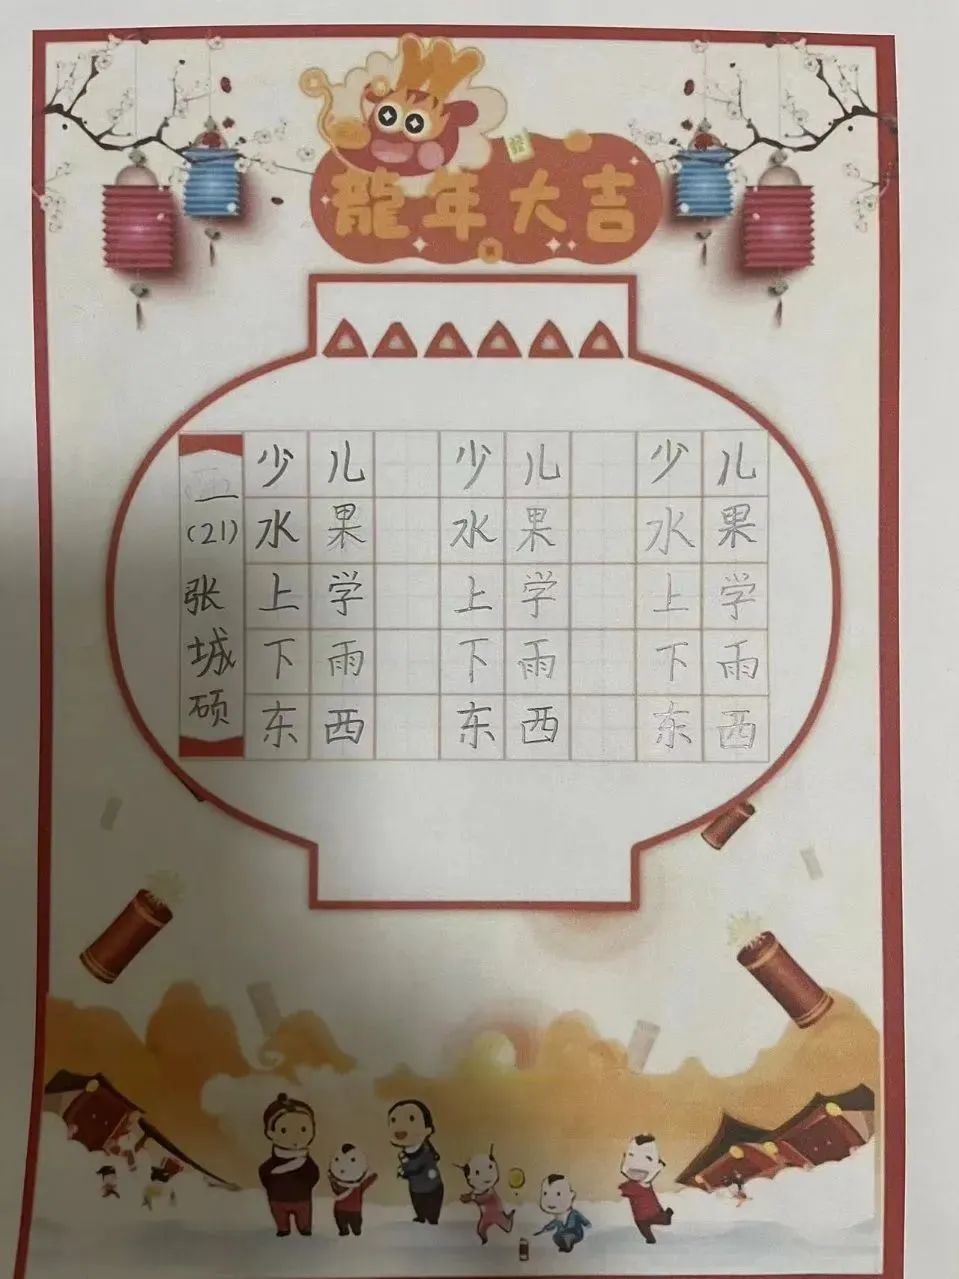 龍年大吉
一(21)张城硕
少儿 少儿 少儿
水果 水果 水果
上学 上学 上学
下雨 下雨 下雨
东西 东西 东西